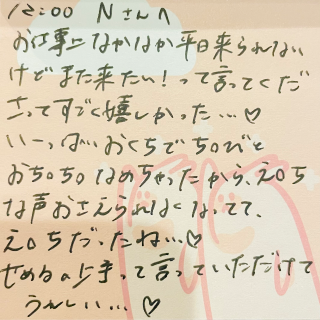 12:00 Nさんへ
お仕事上なかなか平日来られない
けどまた来たい！って言ってくだ
さってすごく嬉しかった…♡
いーっぱいおくちでち○びと
おち○ち○なめちゃったから、え○ち
な声おさえられなくなってて、
え○ちだったね…♡
せめるの上手って言っていただけて
うれしい…♡